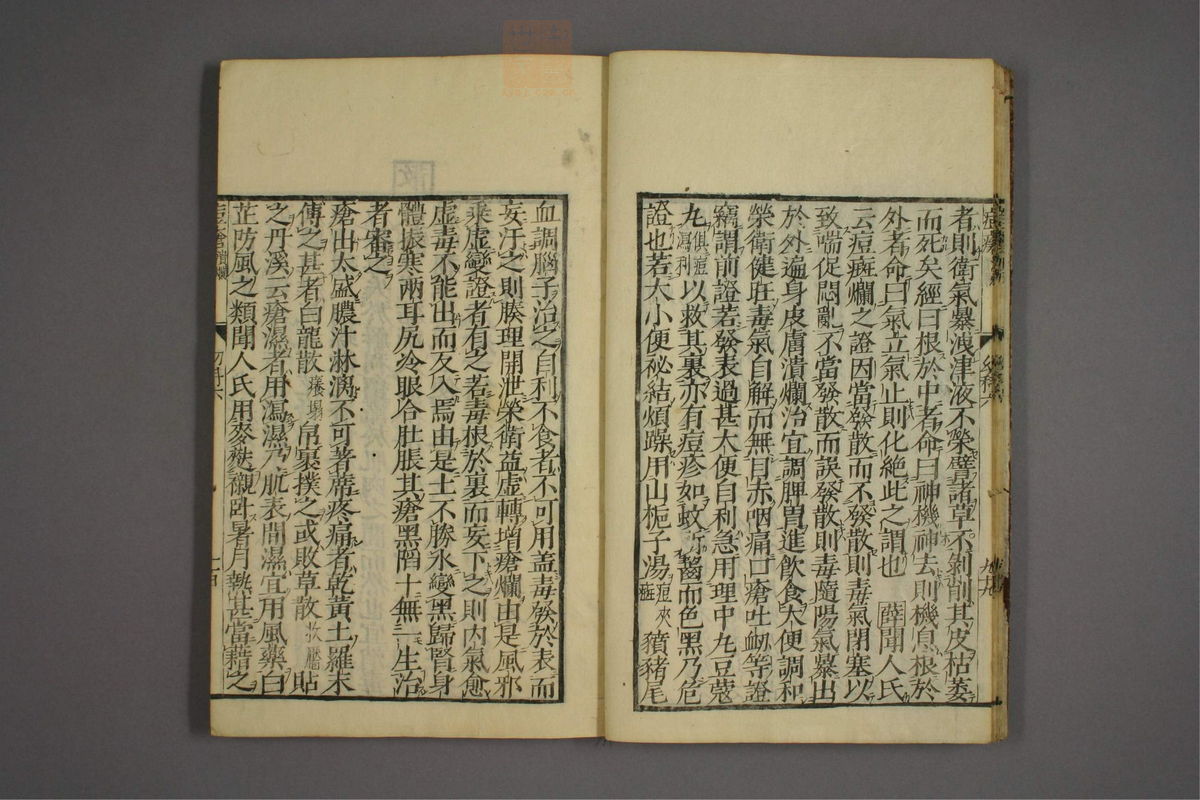 者則衛氣暴洩津液不榮譬諸草木剝削其皮枯萎
而死矣經曰根於中者命曰神機神去則機息根於
外者命曰氣立氣止則化絶此之謂也 薛聞人氏
云痘癍爛之證因當發散而不發散則毒氣閉塞以
致喘促悶亂不當發散而誤發散則毒隨陽氣暴出
於外遍身皮膚潰爛治宜調脾胃進飲食大便調和
榮衛健旺毒氣自解而無目赤咽痛口瘡吐衂等證
竊謂前證若發表過甚大便自利急用理中丸豆蔻
丸俱痘瀉利以救其裏亦有痘疹如蚊所齧而色黑乃危
證也若大小便祕結煩躁用山梔子湯痘夾癍豬豬尾
血調腦子治之自利不食者不可用盖毒發於表而
妄汗之則腠理開泄榮衛益虛轉增瘡爛由是風邪
乘虛變證者有之若毒根於裏而妄下之則内氣愈
虛毒不能出而反入焉由是土不勝水變黑歸腎身
體振寒兩耳尻冷眼合肚脹其瘡黑陷十無一生治
者審之
瘡出太盛膿汁淋漓不可著蓆疼痛者乾黃土羅末
傅之甚者白龍散癢塌帛裹撲之或敗草散狀膿貼
之丹溪云瘡濕者用瀉濕乃肌表間濕宜用風藥白
芷防風之類聞人氏用麥麩襯卧暑月熱甚當藉之